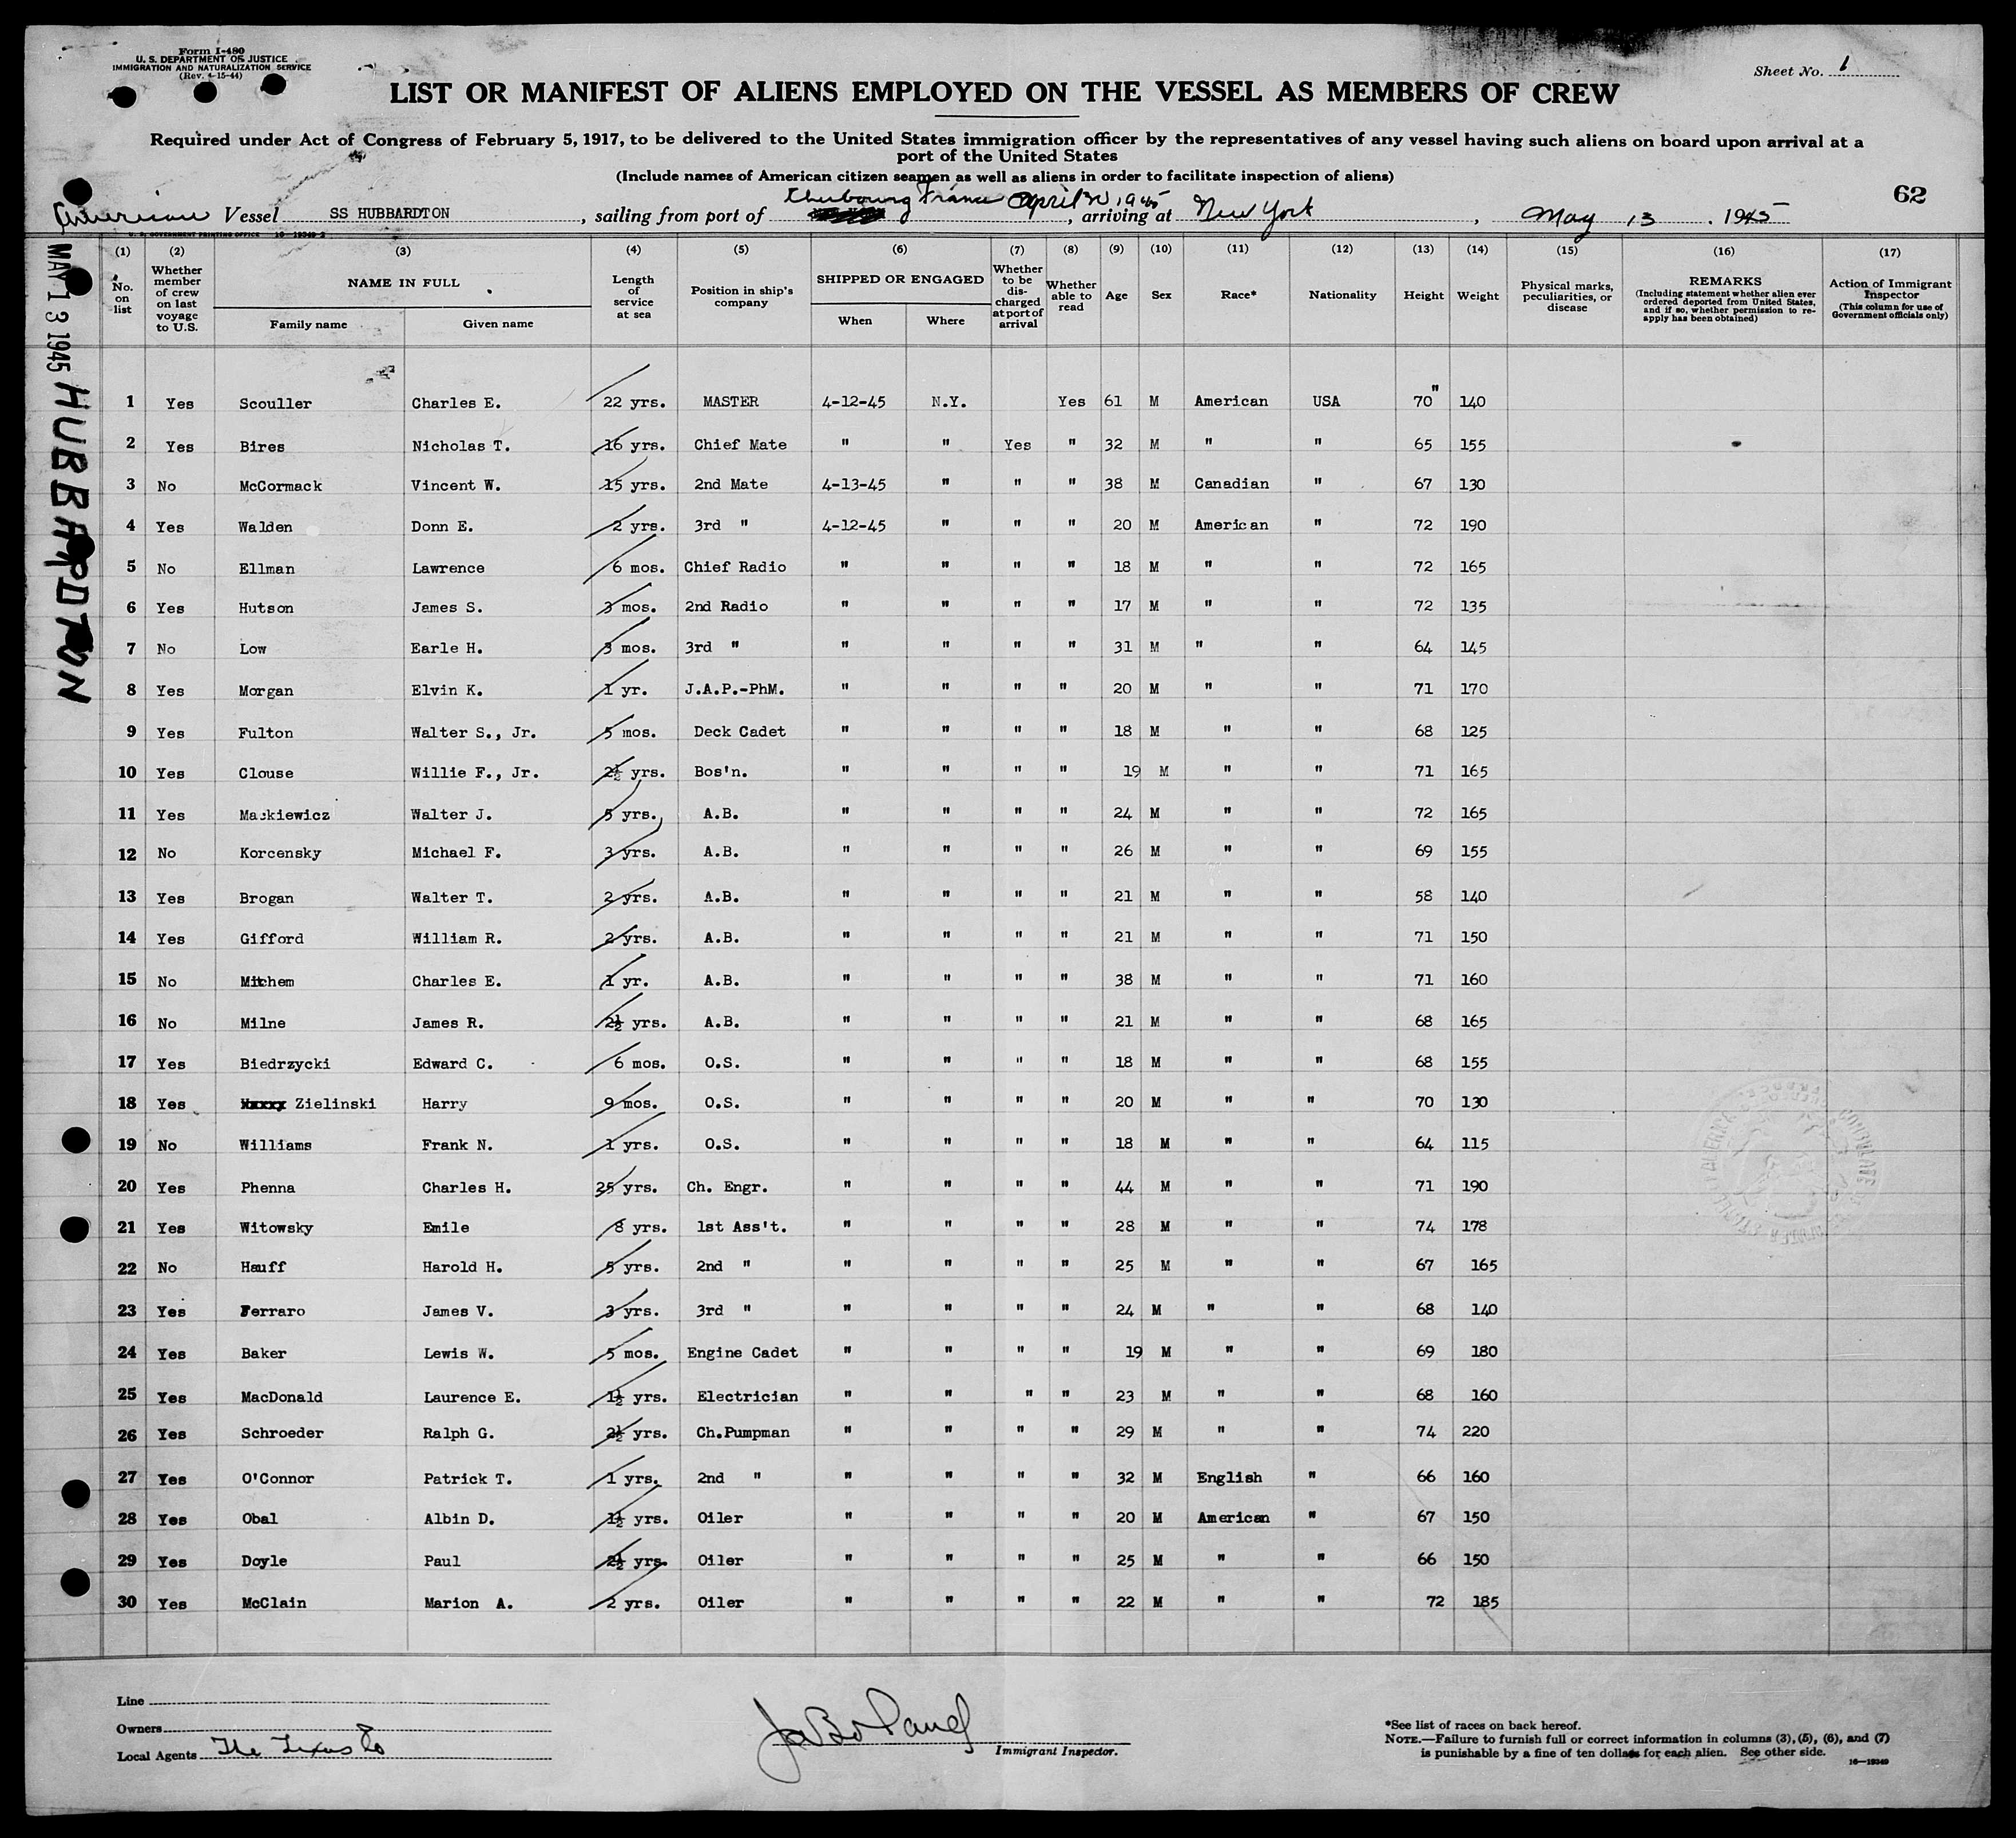 Form I-480
U. S. DEPARTMENT OF JUSTICE
IMMIGRATION AND NATURALIZATION SERVICE
(Rev. 4-15-44)
Sheet No. 1
LIST OR MANIFEST OF ALIENS EMPLOYED ON THE VESSEL AS MEMBERS OF CREW
Required under Act of Congress of February 5, 1917, to be delivered to the United States immigration officer by the representatives of any vessel having such aliens on board upon arrival at a
port of the United States
(Include names of American citizen seamen as well as aliens in order to facilitate inspection of aliens)
62
American Vessel SS HUBBARDTON, sailing from port of Cherbourg France April 1945, arriving at New York, May 13, 1945
U. S. GOVERNMENT PRINTING OFFICE 16-19349-2
MAY 13 1945 HUBBARDTON
(1) (2) (3) (4) (5) (6) (7) (8) (9) (10) (11) (12) (13) (14) (15) (16) (17)
No. on list
Whether member of crew on last voyage to U.S.
NAME IN FULL
Family name Given name
Length of service at sea
Position in ship's company
SHIPPED OR ENGAGED
When Where
Whether to be discharged at port of arrival
Whether able to read
Age Sex Race* Nationality Height Weight
Physical marks, peculiarities, or disease
REMARKS
(Including statement whether alien ever ordered deported from United States, and if so, whether permission to re-apply has been obtained)
Action of Immigrant Inspector
(This column for use of Government officials only)
1 Yes Scouller Charles E. 22 yrs. MASTER 4-12-45 N.Y. Yes 61 M American USA 70" 140
2 Yes Bires Nicholas T. 16 yrs. Chief Mate " " Yes " 32 M " " 65 155
3 No McCormack Vincent W. 15 yrs. 2nd Mate 4-13-45 " " " 38 M Canadian " 67 130
4 Yes Walden Donn E. 2 yrs. 3rd " 4-12-45 " " " 20 M American " 72 190
5 No Ellman Lawrence 6 mos. Chief Radio " " " " 18 M " " 72 165
6 Yes Hutson James S. 3 mos. 2nd Radio " " " " 17 M " " 72 135
7 No Low Earle H. 3 mos. 3rd " " " " " 31 M " " 64 145
8 Yes Morgan Elvin K. 1 yr. J.A.P.-PhM. " " " " 20 M " " 71 170
9 Yes Fulton Walter S., Jr. 5 mos. Deck Cadet " " " " 18 M " " 68 125
10 Yes Clouse Willie F., Jr. 2½ yrs. Bos'n. " " " " 19 M " " 71 165
11 Yes Mackiewicz Walter J. 5 yrs. A.B. " " " " 24 M " " 72 165
12 No Korcensky Michael F. 3 yrs. A.B. " " " " 26 M " " 69 155
13 Yes Brogan Walter T. 2 yrs. A.B. " " " " 21 M " " 58 140
14 Yes Gifford William R. 2 yrs. A.B. " " " " 21 M " " 71 150
15 No Mitchem Charles E. 1 yr. A.B. " " " " 38 M " " 71 160
16 No Milne James R. 2½ yrs. A.B. " " " " 21 M " " 68 165
17 Yes Biedrzycki Edward C. 6 mos. O.S. " " " " 18 M " " 68 155
18 Yes Zielinski Harry 9 mos. O.S. " " " " 20 M " " 70 130
19 No Williams Frank N. 1 yrs. O.S. " " " " 18 M " " 64 115
20 Yes Phenna Charles H. 25 yrs. Ch. Engr. " " " " 44 M " " 71 190
21 Yes Witowsky Emile 8 yrs. 1st Ass't. " " " " 28 M " " 74 178
22 No Hauff Harold H. 5 yrs. 2nd " " " " " 25 M " " 67 165
23 Yes Ferraro James V. 3 yrs. 3rd " " " " " 24 M " " 68 140
24 Yes Baker Lewis W. 5 mos. Engine Cadet " " " " 19 M " " 69 180
25 Yes MacDonald Laurence E. 1½ yrs. Electrician " " " " 23 M " " 68 160
26 Yes Schroeder Ralph G. 2½ yrs. Ch.Pumpman " " " " 29 M " " 74 220
27 Yes O'Connor Patrick T. 1 yrs. 2nd " " " " " 32 M English " 66 160
28 Yes Obal Albin D. 1½ yrs. Oiler " " " " 20 M American " 67 150
29 Yes Doyle Paul 2½ yrs. Oiler " " " " 25 M " " 66 150
30 Yes McClain Marion A. 2 yrs. Oiler " " " " 22 M " " 72 185
Line
Owners
Local Agents The Texas Co
Immigrant Inspector.
*See list of races on back hereof.
NOTE.—Failure to furnish full or correct information in columns (3), (5), (6), and (7)
is punishable by a fine of ten dollars for each alien. See other side.
16-19349